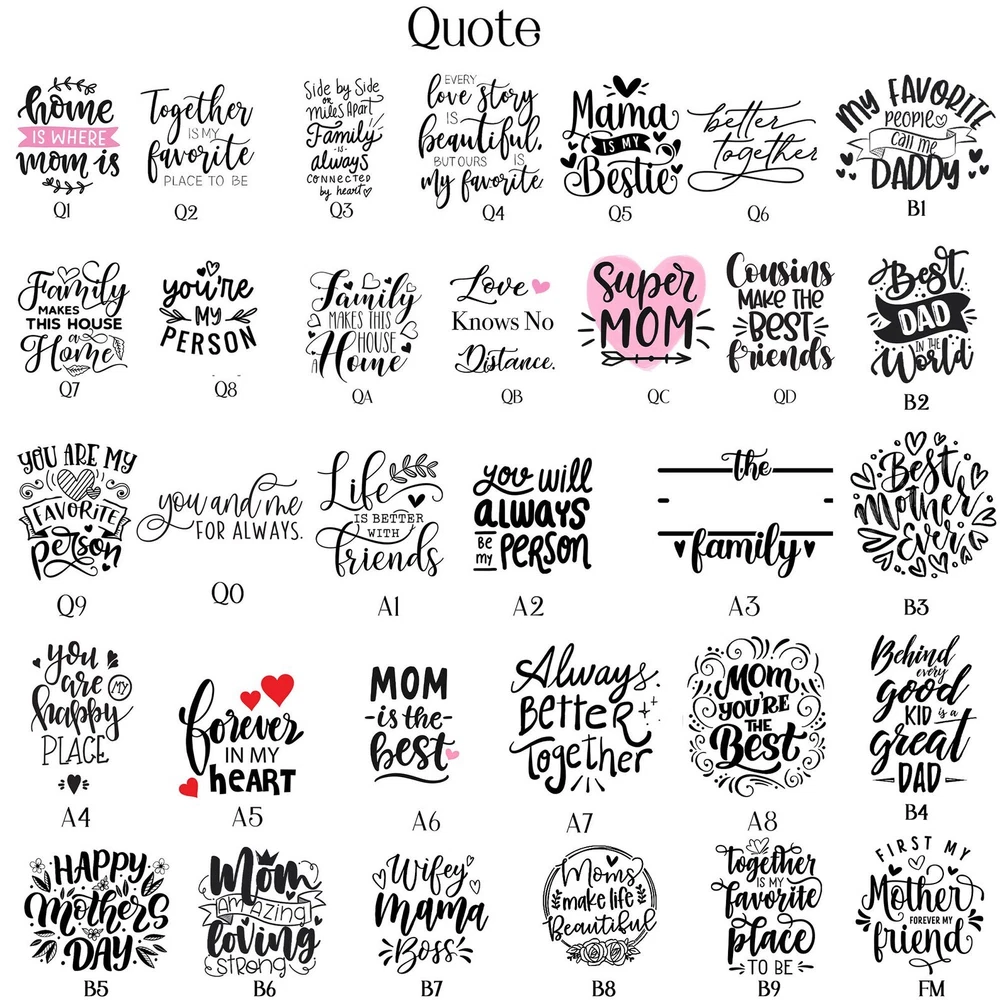 Quote
home
IS WHERE
mom is
Q1
Together
IS MY
favorite
PLACE TO BE
Q2
Side by Side
or
miles Apart
Family
-is-
always
CONNECTED
by heart
Q3
EVERY
love story
IS
beautiful,
BUT OURS IS
my favorite.
Q4
Mama
IS MY
Bestie
Q5
better
together
Q6
MY FAVORITE
PEOPLE
Call me
DADDY
B1
Family
MAKES
THIS HOUSE
a
Home
Q7
you're
MY
PERSON
Q8
Family
MAKES THIS
HOUSE
A
Home
QA
Love
Knows No
Distance.
QB
Super
MOM
QC
Cousins
MAKE THE
BEST
friends
QD
Best
DAD
IN THE
World
B2
YOU ARE MY
FAVORITE
person
Q9
you and me
FOR ALWAYS.
Q0
Life
IS BETTER
WITH
friends
A1
you will
ALWAYS
BE
my
PERSON
A2
the
family
A3
Best
Mother
Ever
B3
you
are
MY
happy
PLACE
A4
forever
IN MY
heart
A5
MOM
-is the-
best
A6
Always
Better
Together
A7
Mom
YOU'RE
THE
Best
A8
Behind
every
good
KID is a
great
DAD
B4
HAPPY
Mother's
DAY
B5
Mom
AMAZING
loving
STRONG
B6
Wifey
mama
Boss
B7
Moms
make life
Beautiful
B8
together
IS MY
favorite
place
TO BE
B9
FIRST MY
Mother
FOREVER MY
friend
FM